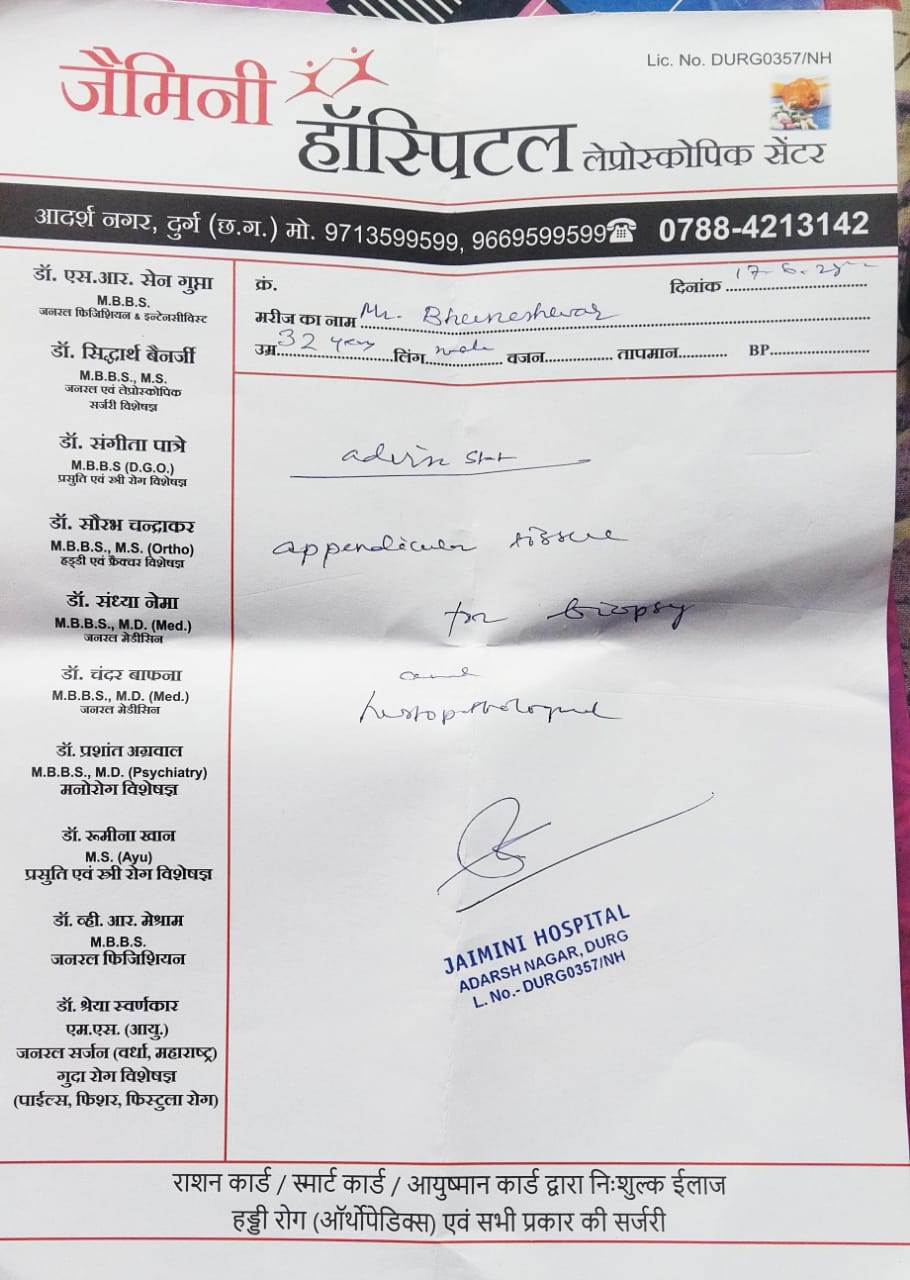 Lic. No. DURG0357/NH
जैमिनी
हॉस्पिटल लेप्रोस्कोपिक सेंटर
आदर्श नगर, दुर्ग (छ.ग.) मो. 9713599599, 9669599599 0788-4213142
डॉ. एस.आर. सेन गुप्ता
M.B.B.S.
जनरल फिजिशियन & इन्टेनसीविस्ट
डॉ. सिद्धार्थ बैनर्जी
M.B.B.S., M.S.
जनरल एवं लेप्रोस्कोपिक
सर्जरी विशेषज्ञ
डॉ. संगीता पात्रे
M.B.B.S (D.G.O.)
प्रसुति एवं स्त्री रोग विशेषज्ञ
डॉ. सौरभ चन्द्राकर
M.B.B.S., M.S. (Ortho)
हड्डी एवं फ्रैक्चर विशेषज्ञ
डॉ. संध्या नेमा
M.B.B.S., M.D. (Med.)
जनरल मेडीसिन
डॉ. चंदर बाफना
M.B.B.S., M.D. (Med.)
जनरल मेडीसिन
डॉ. प्रशांत अग्रवाल
M.B.B.S., M.D. (Psychiatry)
मनोरोग विशेषज्ञ
डॉ. रूमीना खान
M.S. (Ayu)
प्रसुति एवं स्त्री रोग विशेषज्ञ
डॉ. व्ही. आर. मेश्राम
M.B.B.S.
जनरल फिजिशियन
डॉ. श्रेया स्वर्णकार
एम.एस. (आयु.)
जनरल सर्जन (वर्धा, महाराष्ट्र)
गुदा रोग विशेषज्ञ
(पाईल्स, फिशर, फिस्टुला रोग)
क्रं.
दिनांक
मरीज का नाम Mr. Bhuneshewar
उम्र 32 लिंग male वजन तापमान BP
appendicular tissue
for biopsy
and
JAIMINI HOSPITAL
ADARSH NAGAR, DURG
L. No.- DURG0357/NH
राशन कार्ड / स्मार्ट कार्ड / आयुष्मान कार्ड द्वारा निःशुल्क ईलाज
हड्डी रोग (ऑर्थोपेडिक्स) एवं सभी प्रकार की सर्जरी